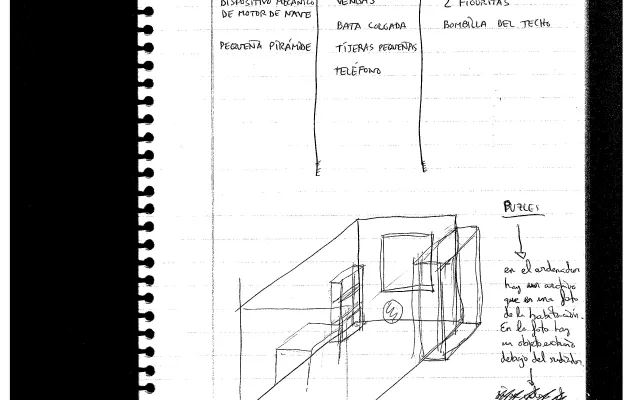 DISPOSITIVO MECÁNICO
DE MOTOR DE NAVE
PEQUEÑA PIRÁMIDE
VENDAS
BATA COLGADA
TIJERAS PEQUEÑAS
TELÉFONO
2 FIGURITAS
BOMBILLA DEL TECHO
PUZLES
en el ordenador
hay un archivo
que es una foto
de la habitación.
En la foto hay
un objeto extraño
debajo del radiador.